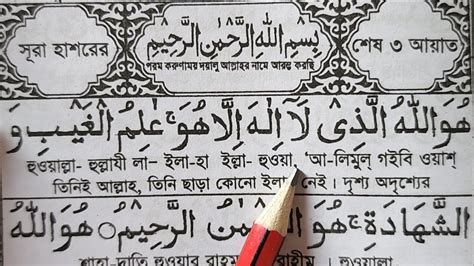 সূরা হাশরের
بِسْمِ اللهِ الرَّحْمٰنِ الرَّحِيْمِ
পরম করুণাময় দয়ালু আল্লাহর নামে আরম্ভ করছি
শেষ ৩ আয়াত
هُوَ اللهُ الَّذِىْ لَآ اِلٰهَ اِلَّا هُوَ ۚ عٰلِمُ الْغَيْبِ وَ
হুওয়াল্লা- হুল্লাযী লা- ইলা-হা ইল্লা- হুওয়া, 'আ-লিমুল্ গইবি ওয়াশ্
তিনিই আল্লাহ, তিনি ছাড়া কোনো ইলাহ নেই। দৃশ্য অদৃশ্যের
الشَّهَادَةِ ۚ هُوَ الرَّحْمٰنُ الرَّحِيْمُ ○ هُوَ اللهُ
শাহা-দাতি হুওয়ার রাহমা- রাহীম। হুওয়াল্লা-